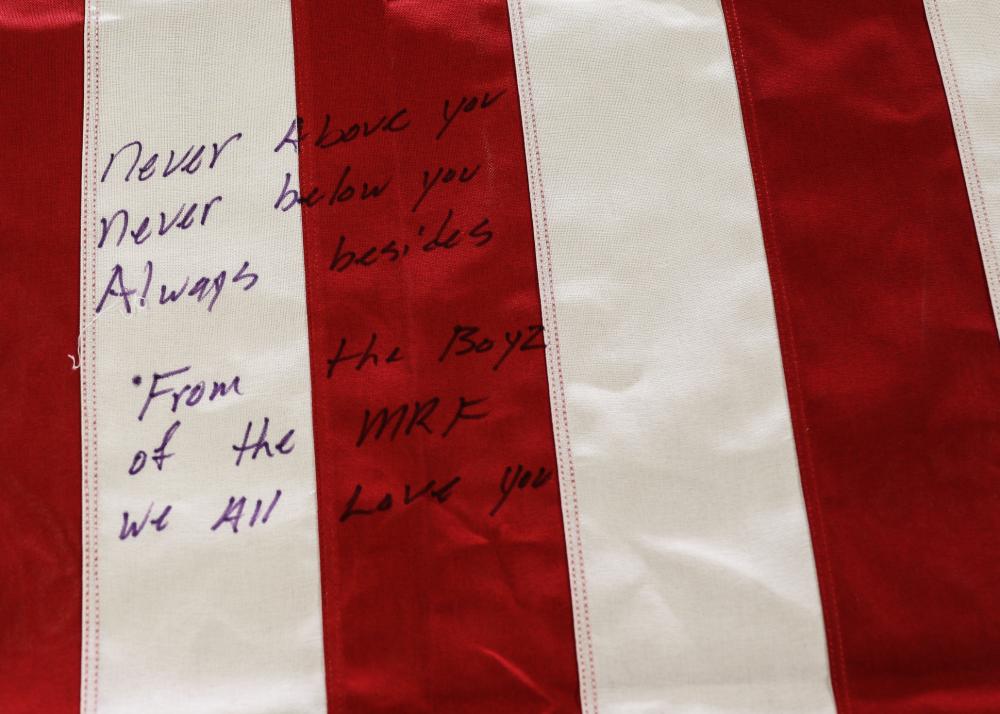 Never Above you
never below you
Always besides
•From the Boyz
of the MRF
we All Love you